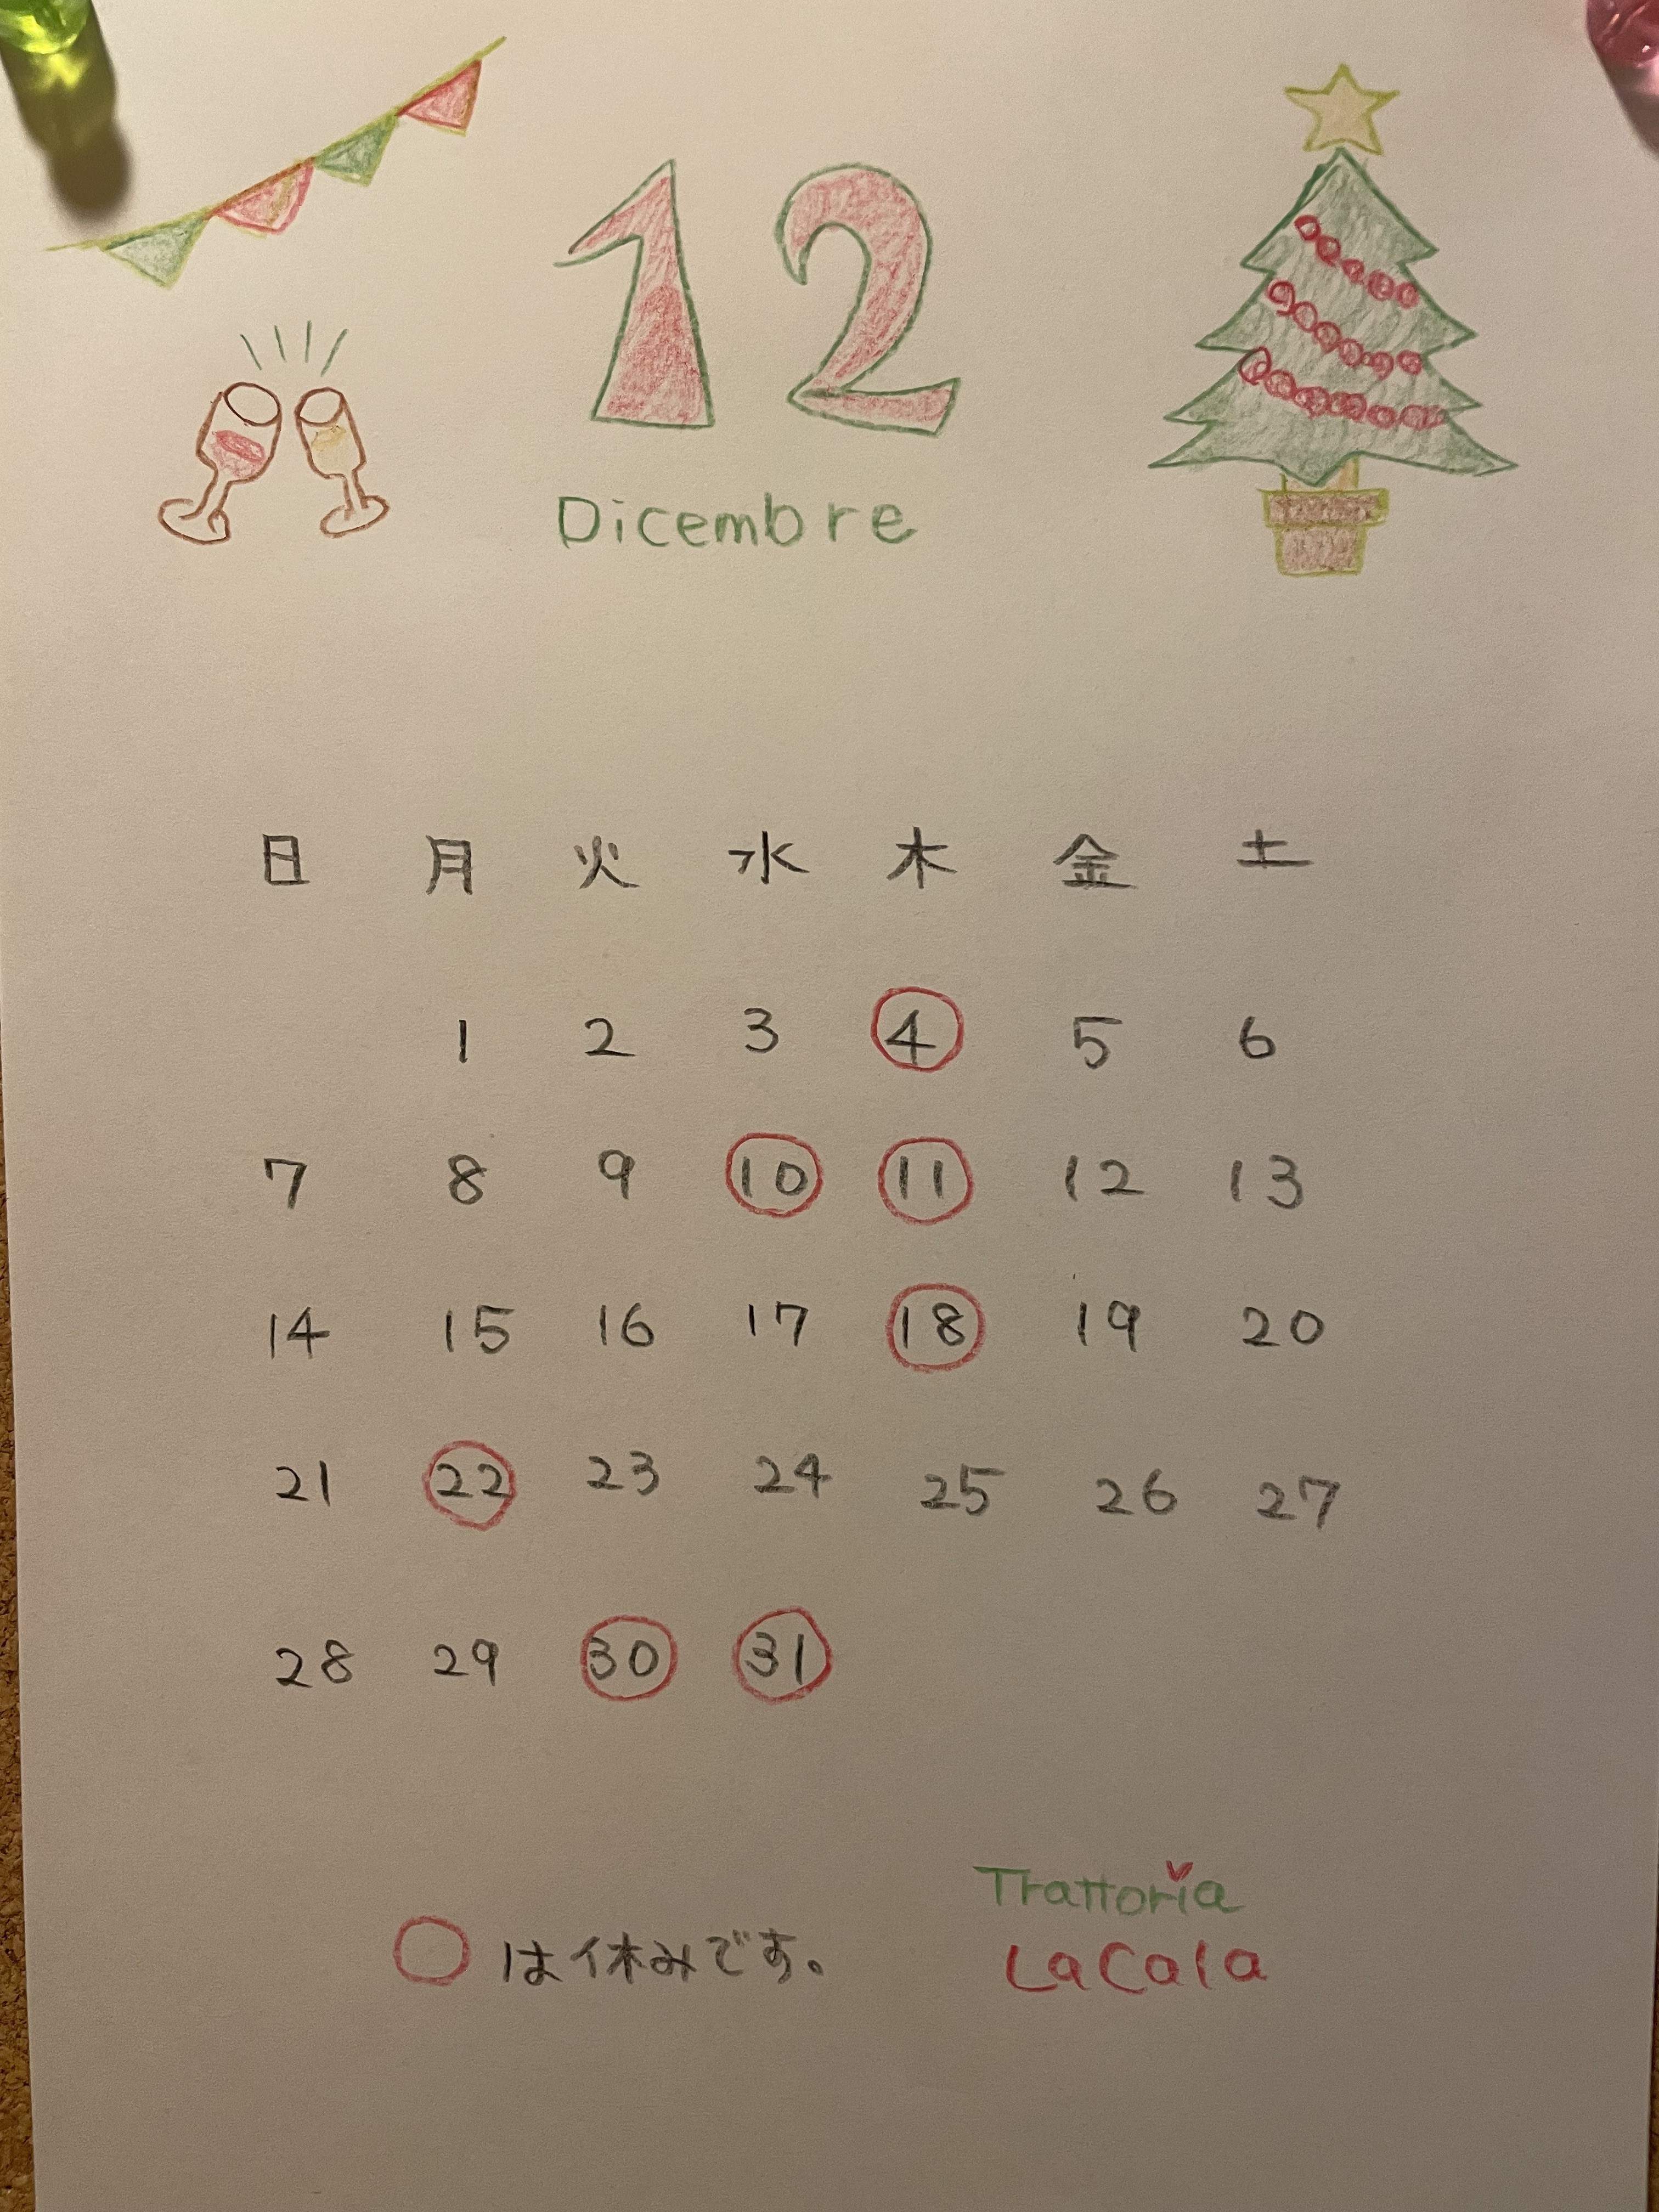 12
Dicembre
日 月 火 水 木 金 土
1 2 3 4 5 6
7 8 9 10 11 12 13
14 15 16 17 18 19 20
21 22 23 24 25 26 27
28 29 30 31
○は休みです。
Trattoria
La Cala